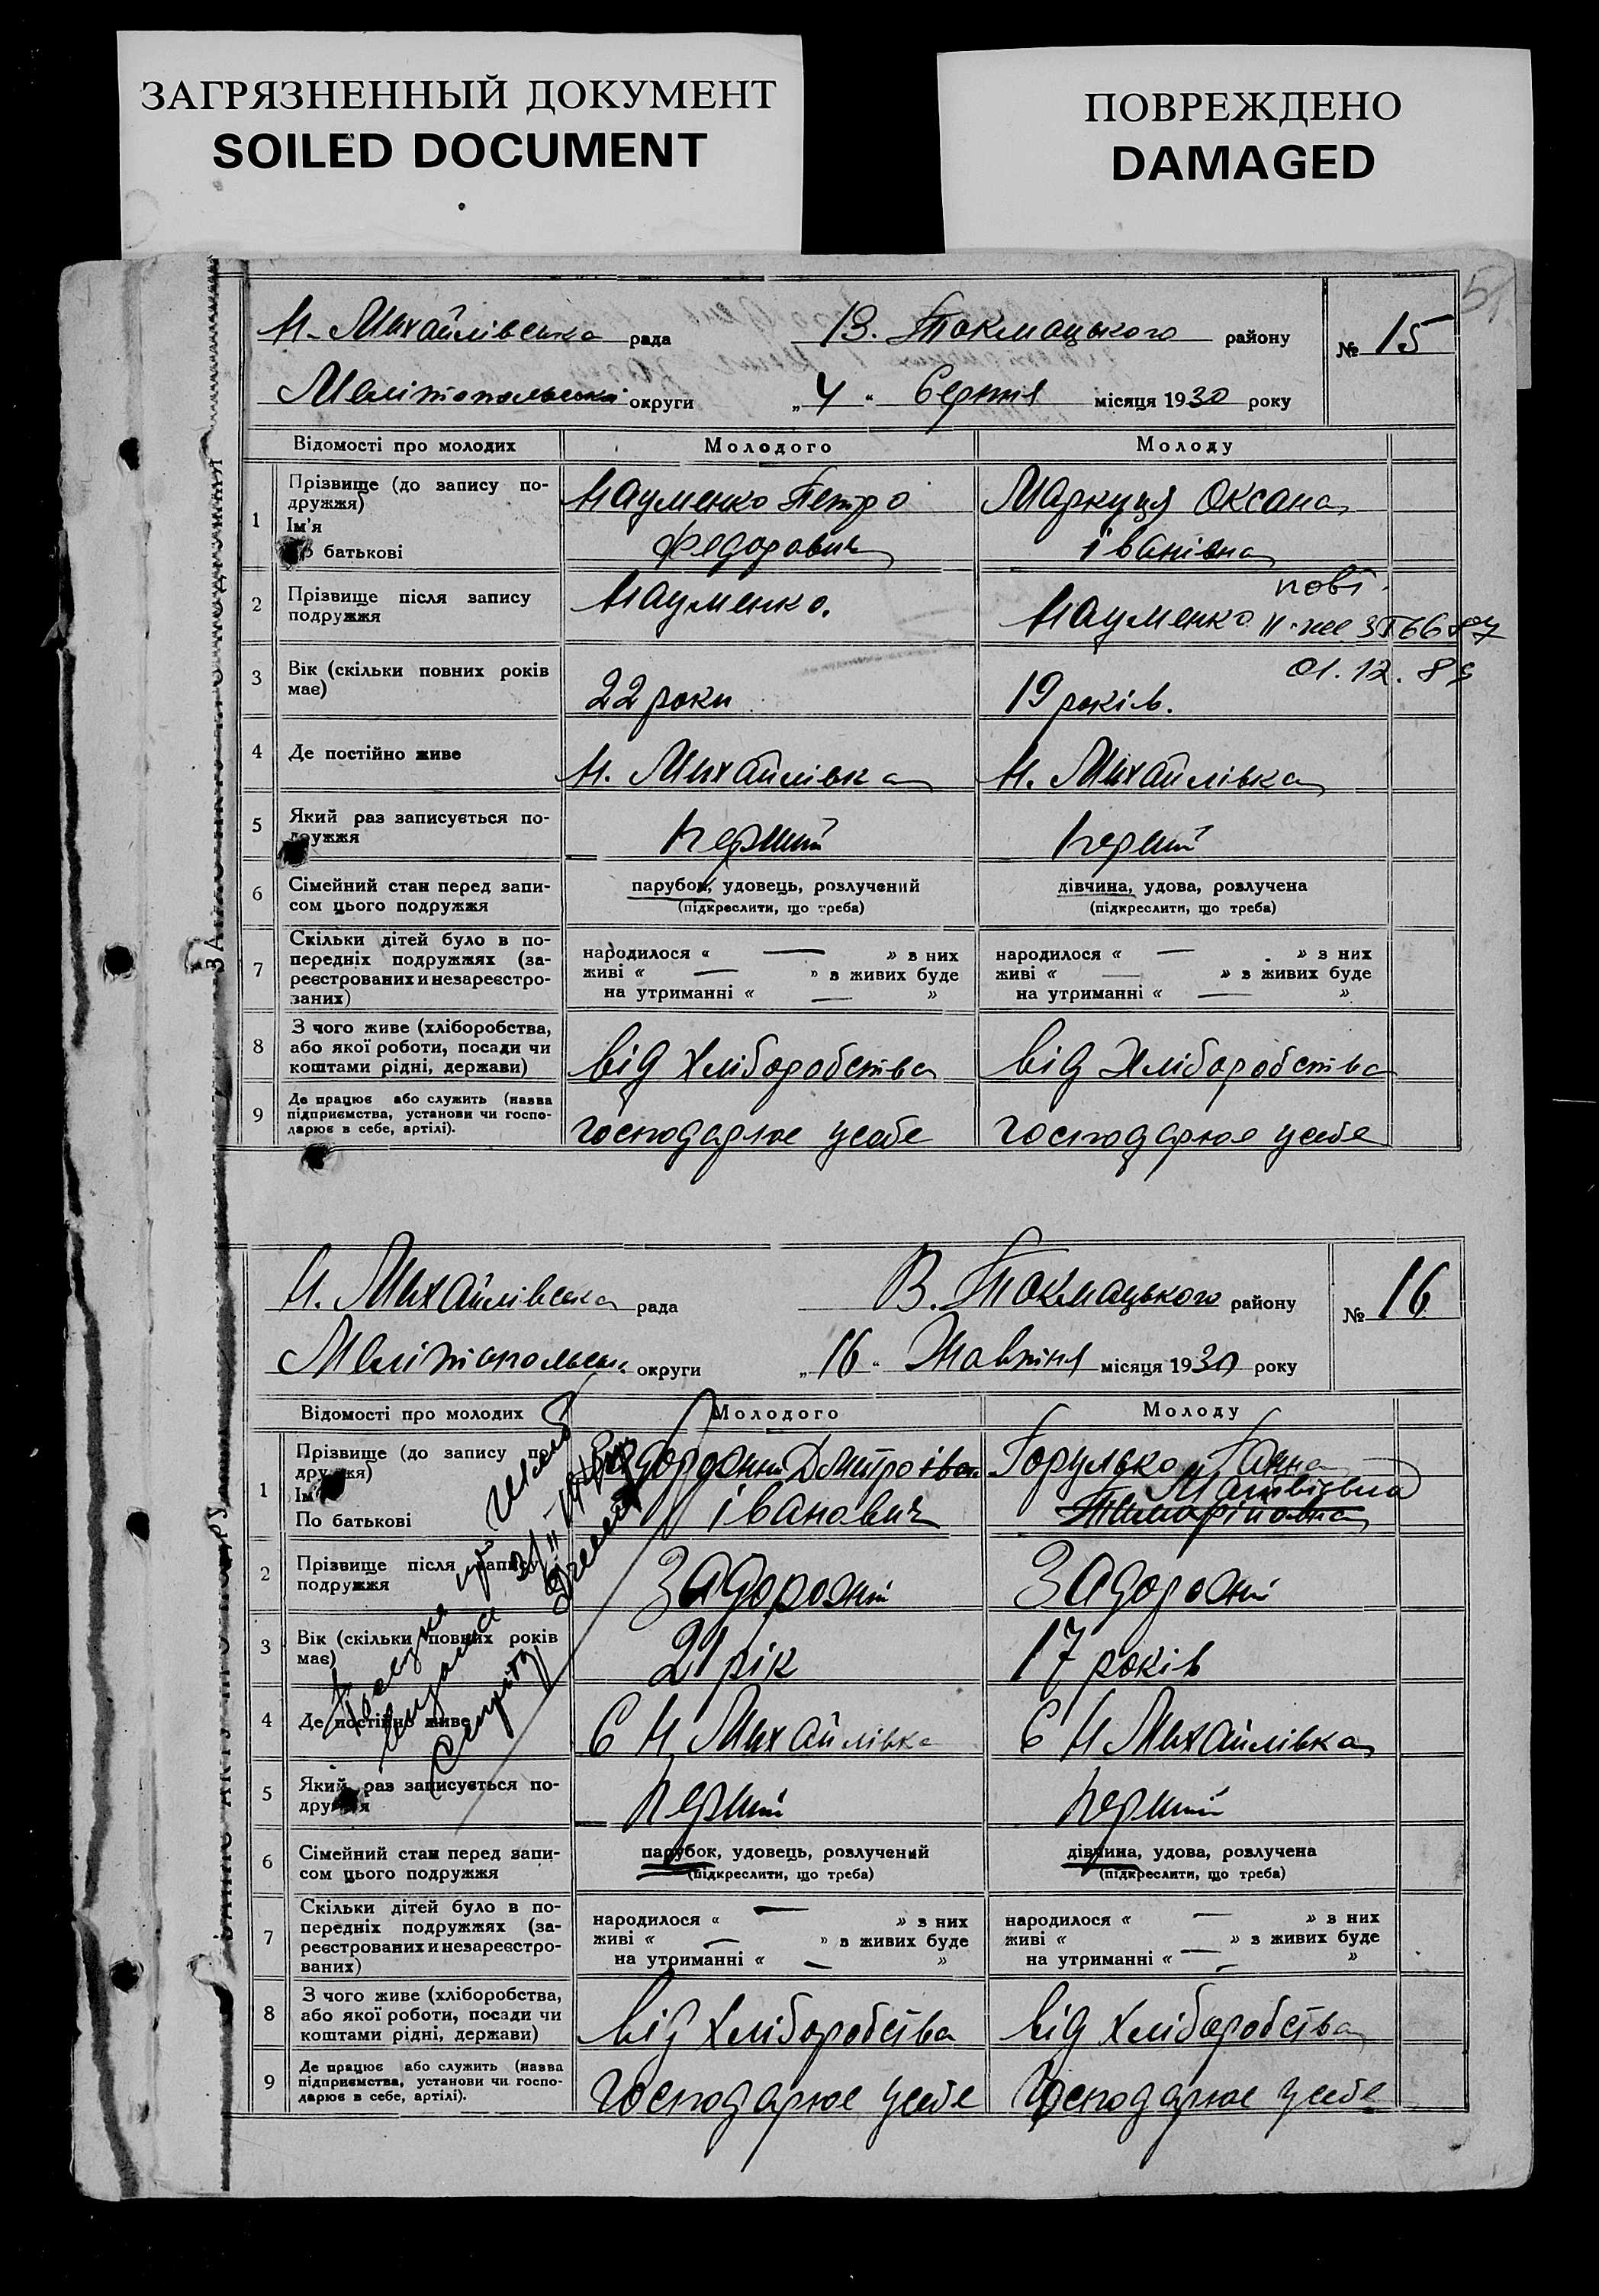 ЗАГРЯЗНЕННЫЙ ДОКУМЕНТ
SOILED DOCUMENT
ПОВРЕЖДЕНО
DAMAGED
51
Н-Михайлівська рада В. Токмацького району № 15
Мелітопольської округи „4“ Серпня місяця 1930 року
Відомості про молодих Молодого Молоду
1 Прізвище (до запису по-
дружжя)
Ім'я
батькові
Науменко Петро
Федорович
Маркуця Оксана
Іванівна
2 Прізвище після запису
подружжя
Науменко.
Науменко
пові
01.12.89
3 Вік (скільки повних років
має)
22 роки
19 років.
4 Де постійно живе
Н. Михайлівка
Н. Михайлівка
5 Який раз записується по-
дружжя
перший
перший
6 Сімейний стан перед запи-
сом цього подружжя
парубок, удовець, розлучений
(підкреслити, що треба)
дівчина, удова, розлучена
(підкреслити, що треба)
7 Скільки дітей було в по-
передніх подружжях (за-
реєстрованих и незареєстро-
ваних)
народилося « — » з них
живі « — » з живих буде
на утриманні « — »
народилося « — » з них
живі « — » з живих буде
на утриманні « — »
8 З чого живе (хліборобства,
або якої роботи, посади чи
коштами рідні, держави)
від хліборобства
від хліборобства
9 Де працює або служить (назва
підприємства, установи чи госпо-
дарює в себе, артілі).
господарює усебе
господарює усебе
Н. Михайлівська рада В. Токмацького району № 16
Мелітопольськ. округи „16“ Жовтня місяця 1930 року
Відомості про молодих Молодого Молоду
1 Прізвище (до запису по-
дружжя)
Ім'я
По батькові
Задорожний Дмитро Іван
Іванович
Горулько Ганна
Матвієвна
2 Прізвище після запису
подружжя
Задорожні
Задорожні
3 Вік (скільки повних років
має)
21 рік
17 років
4 Де постійно живе
С Н. Михайлівка
С Н Михайлівка
5 Який раз записується по-
дружжя
перший
перший
6 Сімейний стан перед запи-
сом цього подружжя
парубок, удовець, розлучений
(підкреслити, що треба)
дівчина, удова, розлучена
(підкреслити, що треба)
7 Скільки дітей було в по-
передніх подружжях (за-
реєстрованих и незареєстро-
ваних)
народилося « — » з них
живі « — » з живих буде
на утриманні « — »
народилося « — » з них
живі « — » з живих буде
на утриманні « — »
8 З чого живе (хліборобства,
або якої роботи, посади чи
коштами рідні, держави)
від хліборобства
від хліборобства
9 Де працює або служить (назва
підприємства, установи чи госпо-
дарює в себе, артілі).
господарює усебе
господарює усебе